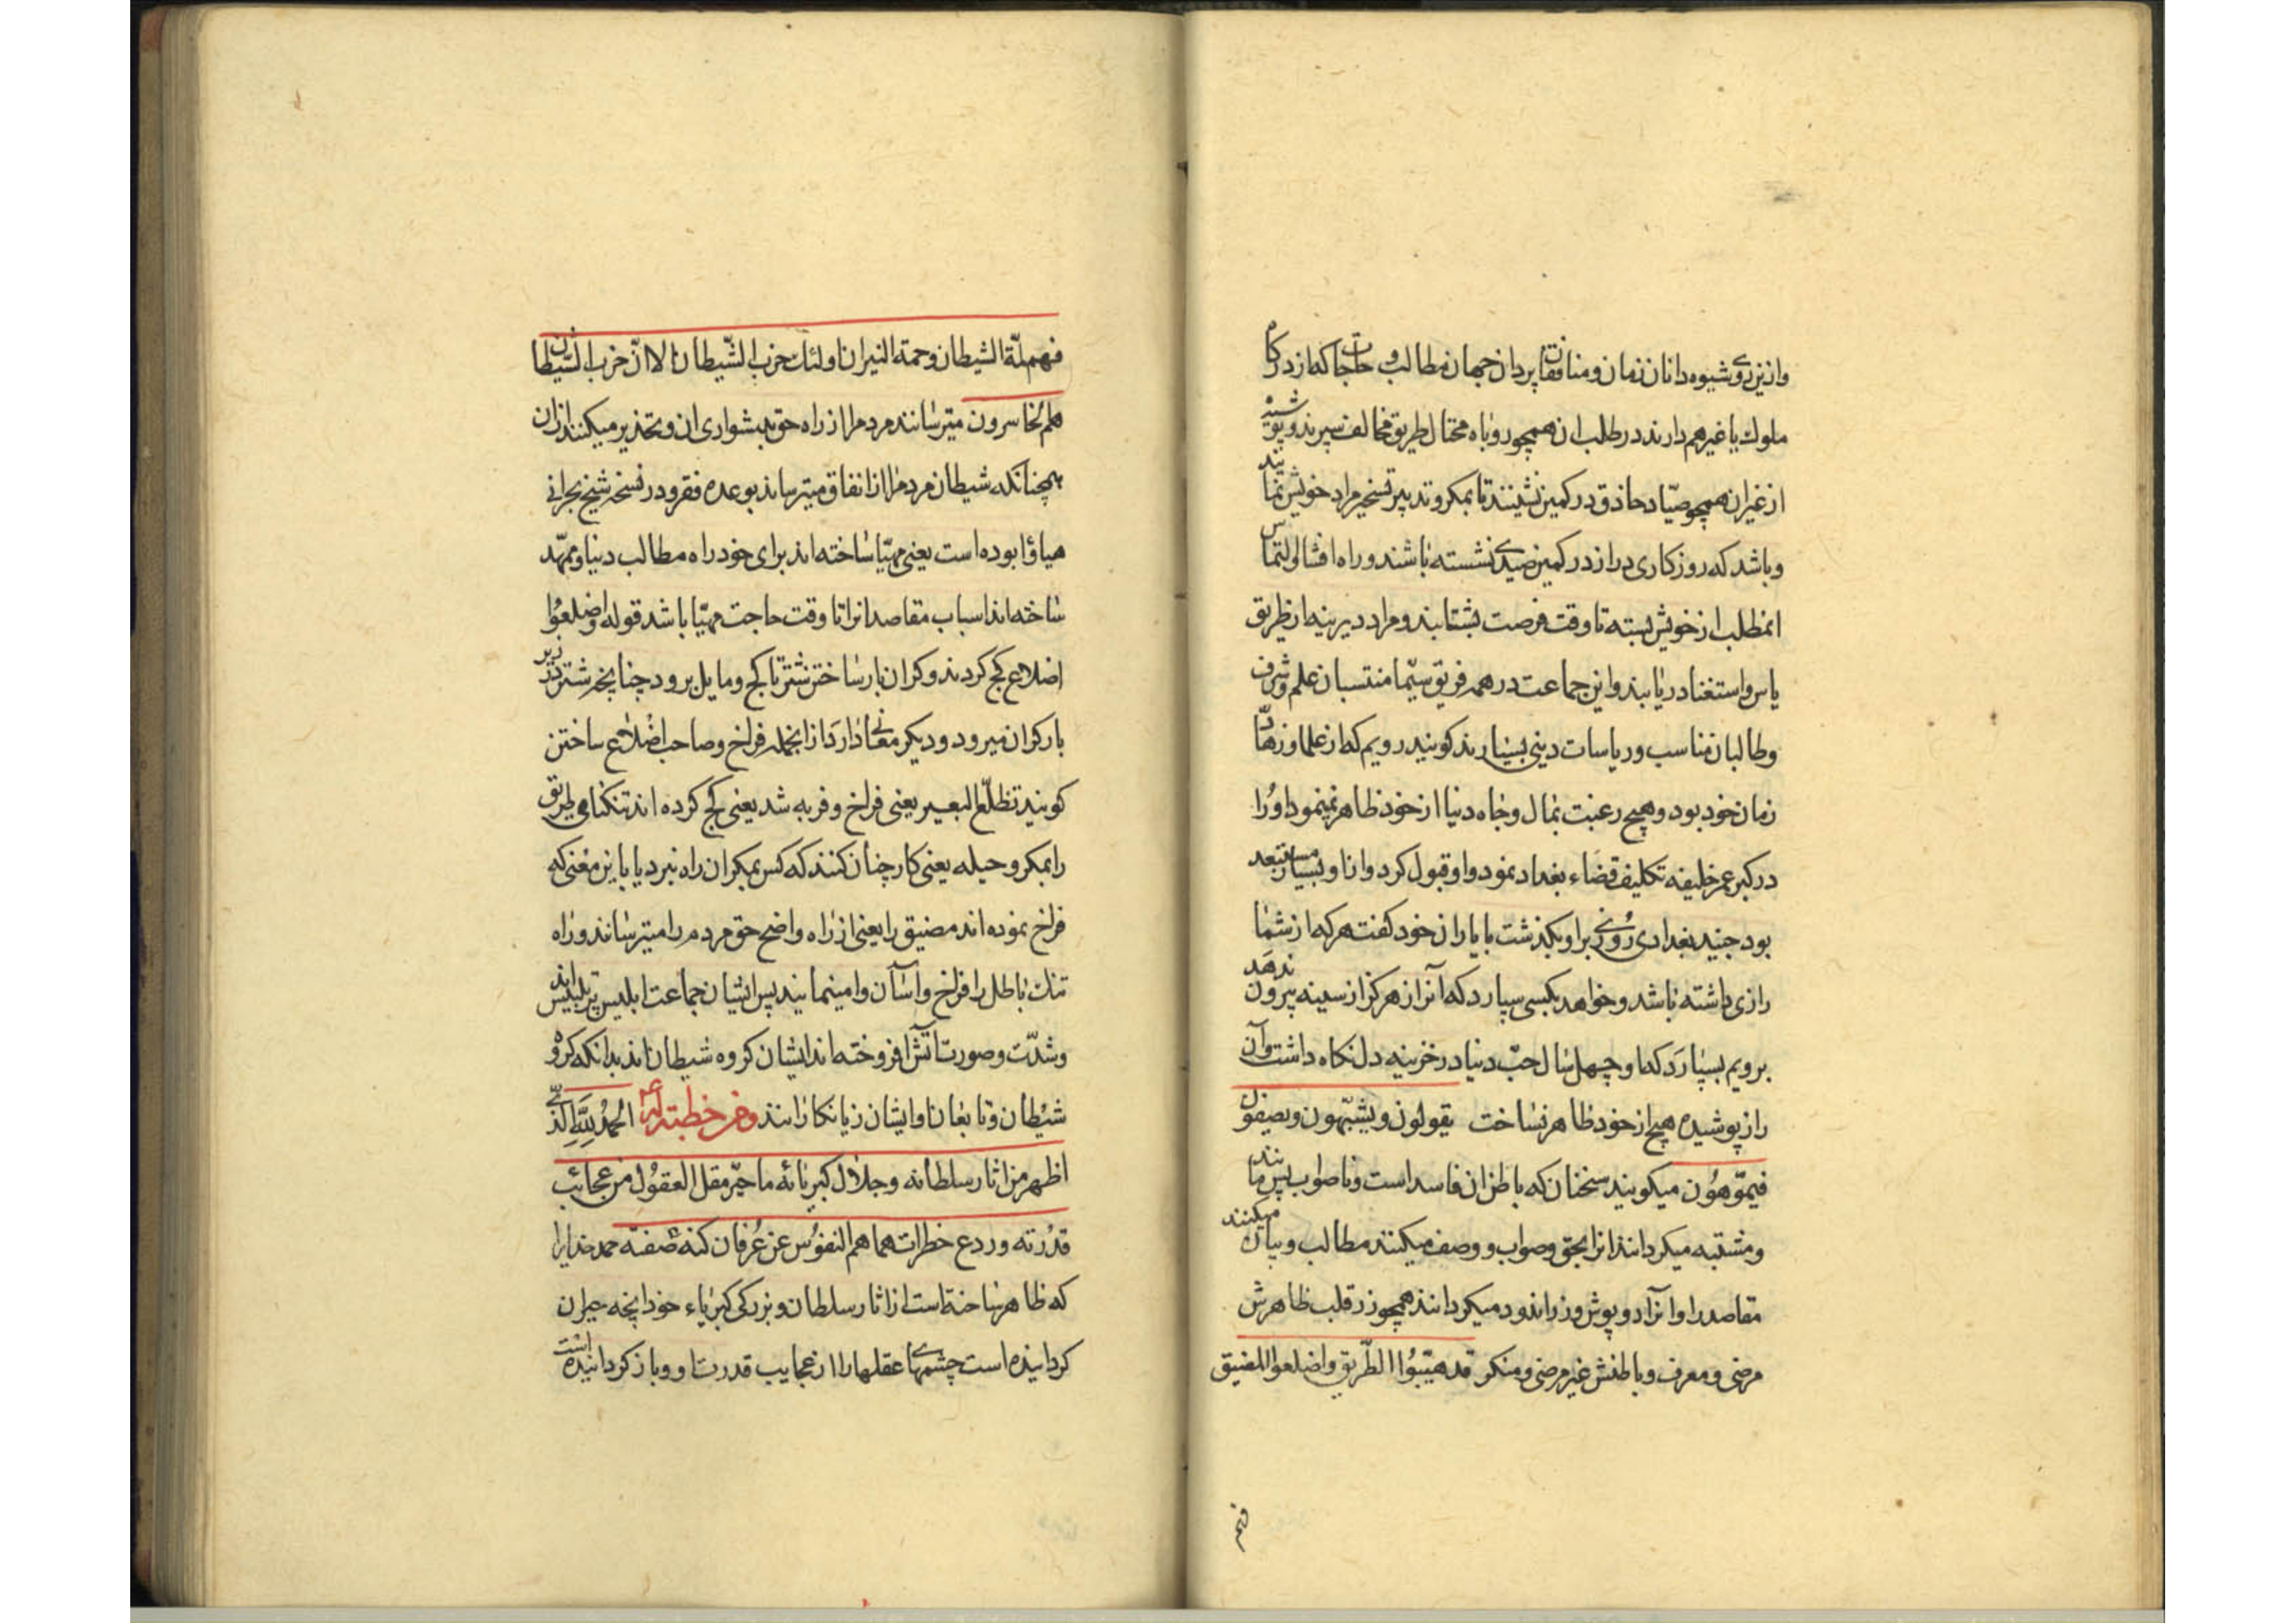 وازین زی و شیوه دانان زمان و منافقت پردازن جهان مطالب و حاجات که از درکام
ملوک یا غیرهم دارند در طلب ان همچو روباه محتال طریق مخالف سپرند و پوشیده
از غیر ان همچو صیّاد حاذق در کمین نشینند تا بمکر و تدبیر تسخیر مراد خویش نمایند
و باشد که روزکاری دراز در کمین صیدی نشسته باشند و راه افشا و التماس
انمطلب از خویش بسته تا وقت فرصت بشتابند و مراد دیرینه از طریق
یاس و استغنا دریابند و این جماعت در همه فریق سیّما منتسبان علم و شرف
و طالبان مناسب و ریاسات دینی بسیارند کویند رویم که از علما و زهّاد
زمان خود بود و هیچ رغبت بمال و جاه دنیا از خود ظاهر نمینمود او را
در کبر عمر خلیفه تکلیف قضاء بغداد نمود و او قبول کرد و ان از او بسیار مستبعد
بود جنید بغدادی روزی بر او بکذشت با یاران خود کفت هرکه از شما
رازی داشته باشد و خواهد بکسی سپارد که آنرا هرکز از سینه بیرون ندهد
برویم بسپارد که او چهل سال حبّ دنیا در خزینه دل نکاه داشت و آن
راز پوشیده هیچ از خود ظاهر نساخت یقولون و یشبّهون و یصفون
فیموّهون میکویند سخنان که باطن ان فاسد است و ناصواب پس مانند
و مشتبه میکردانند انرا بحق و صواب و وصف میکنند مطالب و بیان میکنند
مقاصد را و انرا دو پوش و زراندود میکردانند همچو زر قلب ظاهرش
مرضی و معرف و باطنش غیر مرضی و منکر قد هیّبوا الطّریق و اضلعوا المضیق
فهم
فهم لمّة الشیطان و حمة النیران اولئک حزب الشّیطان الا انّ حزب الشّیطان
هم الخاسرون میترسانند مردم را از راه حق بدشواری ان و تحذیر میکنند از ان
همچنانکه شیطان مردم را از انفاق میترساند بوعده فقر و در نسخه شیخ بحرانی
هیاؤا بوده است یعنی مهیّا ساخته اند برای خود راه مطالب دنیا و ممهّد
ساخته اند اسباب مقاصد انرا تا وقت حاجت مهیّا باشد قوله و اضلعوا
اضلاع کج کردند و کران بار ساختن شتر تا کج و مایل برود چنانچه شتر در زیر
بار کران میرود و دیکر معانی دارد از انجمله فراخ و صاحب اضلاع ساختن
کویند تظلّع البعیر یعنی فراخ و فربه شد یعنی کج کرده اند تنکنای طریق
را بمکر و حیله یعنی کار چنان کنند که کس بمکر ان راه نبرد یا باین معنی که
فراخ نموده اند مضیق را یعنی از راه واضح حق مردم را میترسانند و راه
تنک باطل را فراخ و اسان وامینمایند پس ایشان جماعت ابلیس پر تلبیس اند
و شدّت و صورت آتش افروخته اند ایشان کروه شیطان اند بدانکه کروه
شیطان و تابعان او ایشان زیانکارانند و من خطبة له ع الحمد للّه الّذی
اظهر من اثار سلطانه و جلال کبریائه ما حیّر مقل العقول من عجائب
قدرته و ردع خطرات هماهم النفوس عن عرفان کنه صفته حمد خدایرا
که ظاهر ساخته است از اثار سلطان و بزرکی کبریاء خود انچه حیران
کردانیده است چشمهای عقلها را از عجایب قدرت او و باز کردانیده است